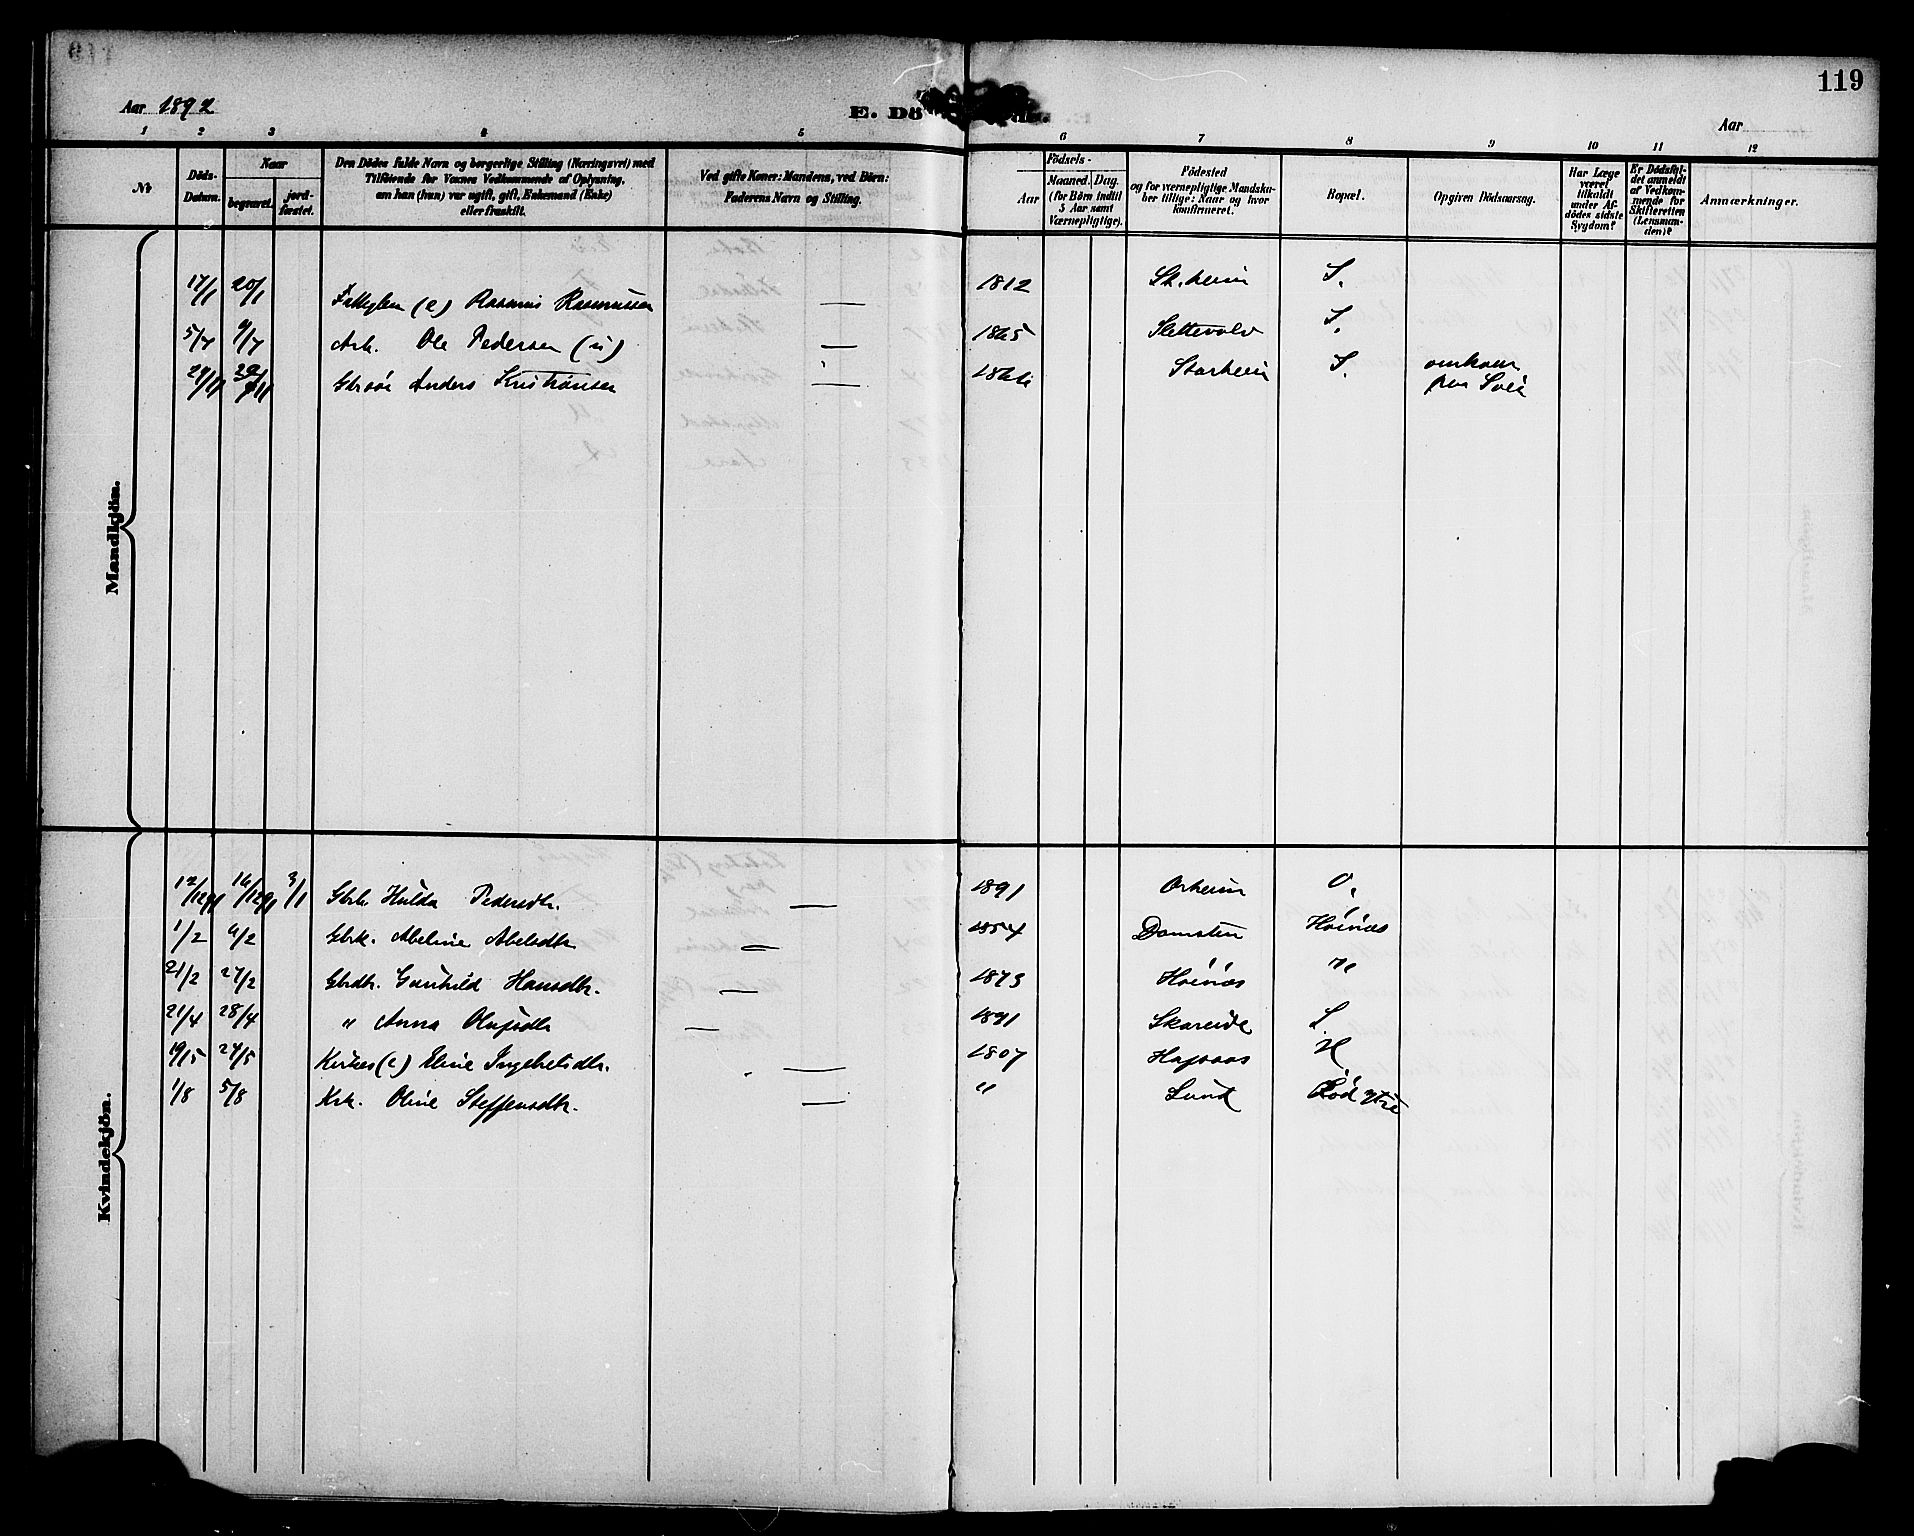 119
Aar 1892
E. Dö
Aar
1 2 3 4 5 6 7 8 9 10 11 12
No
Döds-
Datum.
Naar
begravet.
jord-
fæstet.
Den Dödes fulde Navn og borgerlige Stilling (Næringsvei) med
Tilföiende for Voxnes Vedkommende af Oplysning,
om han (hun) var ugift, gift, Enkemand (Enke)
eller fraskilt.
Ved gifte Koner: Mandens, ved Börn:
Faderens Navn og Stilling.
Födsels-
Aar
Maaned. Dag.
(for Börn indtil
5 Aar samt
Værnepligtige).
Födested
og for værnepligtige Mandska-
ber tillige: Naar og hvor
konfirmeret.
Bopæl.
Opgiven Dödsaarsag.
Har Læge
været
tilkaldt
under Af-
dödes sidste
Sygdom?
Er Dödsfal-
det anmeldt
af Vedkom-
mende for
Skifteretten
(Lensman-
den)?
Anmærkninger.
Mandkjön.
17/1 20/1 (e) Rasmus Rasmussen — 1812 S.
5/7 9/7 Arb. Ole Pedersen (u) — 1865 S.
Gbrsø Anders Kristiansen — 1866 Starheim S. omkom
paa
Kvindekjön.
12/12 91 16/12 91 3/1 Gbrb. Hulda Pedersdtr. — 1891 Orheim O.
1/2 9/2 Gbrk. Abeline Abelsdtr — 1854 Domsten Höinæs
21/2 27/2 Gbrdtr. Gunhild Hansdtr. — 1873 Höinæs "
21/4 28/4 " Anna Olufsdtr — 1891 Skareide S.
19/5 24/5 (e) Eline Ingebrtsdtr. — 1807 Hapsaas H
1/8 5/8 Krk. Oline Steffensdtr. — " Lund Röd ytre